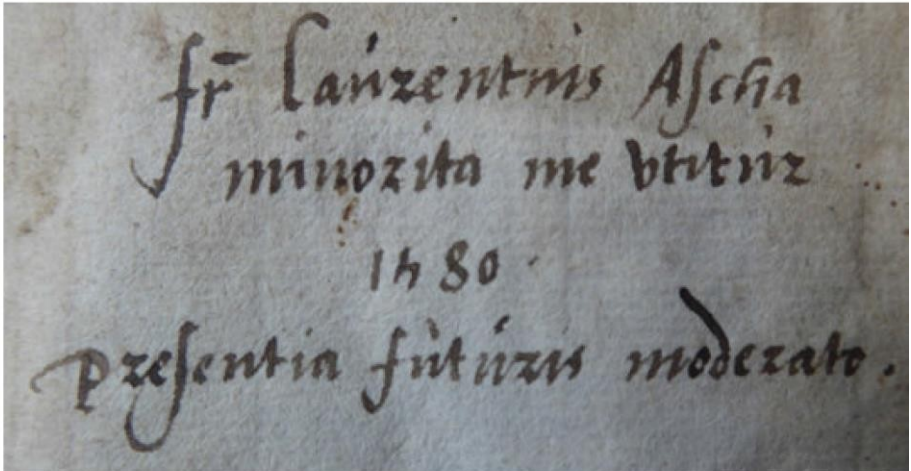 fr̄ Laurentius Ascha
minorita me vtitur
1580.
presentia futuris moderato.